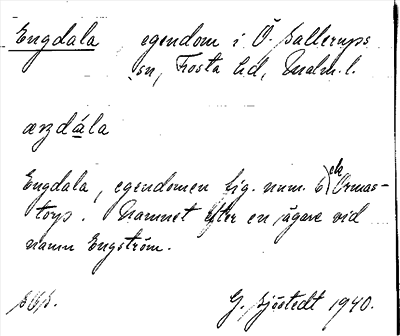 Engdala, egendom i Ö. Sallerups
sn, Frosta hd, Malm. l.
æŋdála
Engdala, egendomen lig. num. 6) ek Ormas-
torp. Namnet efter en ägare vid
namn Engström.
G. Sjöstedt 1940.